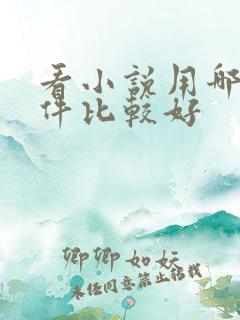 看小說用哪
件比較好
卿卿如妘
未经同意禁止转载